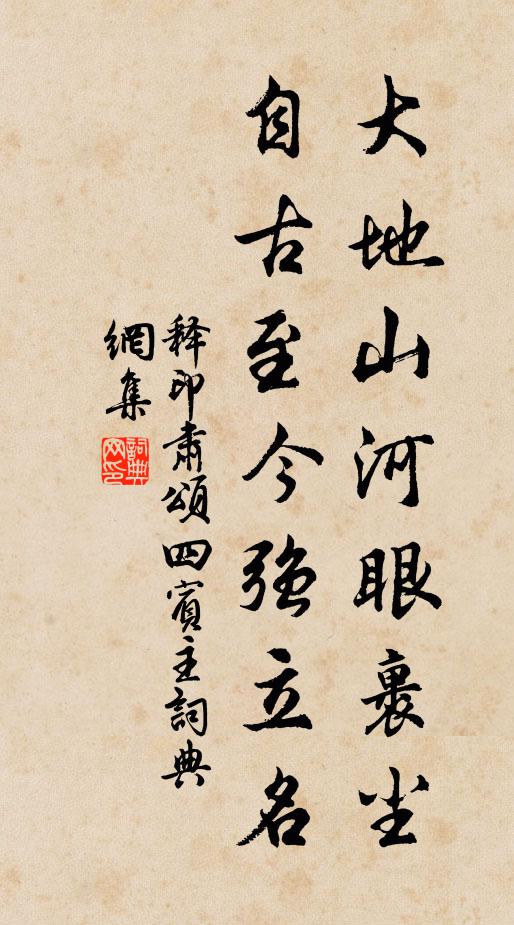 大地山河眼裏尘
自古至今強立名
释印肃頌四賓主詞典
網集
詞典
网印